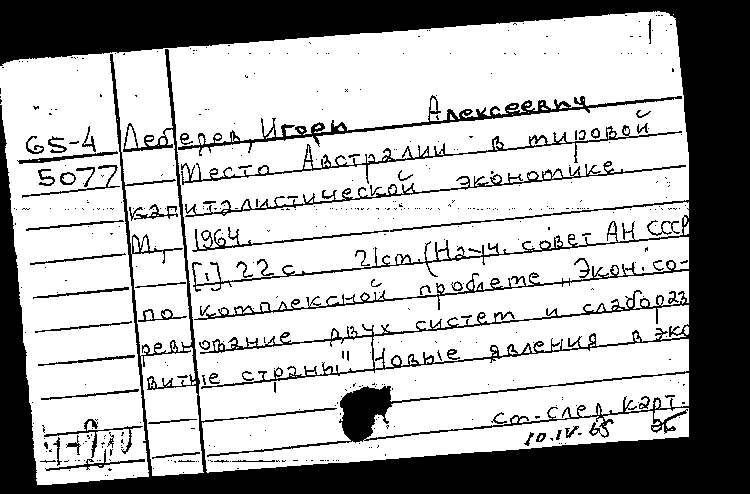 1
65-4 Лебедев, Игорь Алексеевич
5077 Место Австралии в мировой
капиталистической экономике.
М., 1964.
[1], 22 с. 21 см. (Науч. совет АН СССР
по комплексной проблеме „Экон. со-
ревнование двух систем и слабораз
витые страны". Новые явления в эко
см. след. карт.
10.IV-65